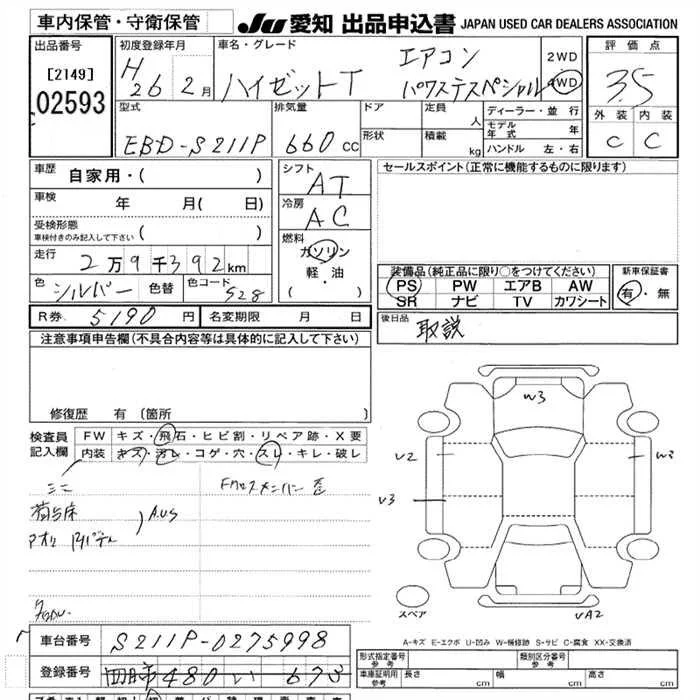 車内保管・守衛保管
JU 愛知 出品申込書 JAPAN USED CAR DEALERS ASSOCIATION
出品番号
[2149]
02593
初度登録年月
H 26 2月
車名・グレード
ハイゼットT
エアコン
パワステスペシャル
2WD
4WD
評価点
3.5
外装 内装
C C
型式
EBD-S211P
排気量
660 cc
ドア
形状
定員
人
積載
kg
ディーラー・並行
モデル年式 年
ハンドル 左・右
車歴
自家用・( )
車検
年 月( 日)
受検形態
車検付きのみ記入して下さい
( )
走行
2万9千392km
色
シルバー
色替
色コード
S28
シフト
AT
冷房
AC
燃料
ガソリン
軽・油
( )
セールスポイント(正常に機能するものに限ります)
装備品(純正品に限り○をつけてください)
PS PW エアB AW
SR ナビ TV カワシート
新車保証書
有・無
R券 5190 円
名変期限 月 日
後日品
取説
注意事項申告欄(不具合内容等は具体的に記入して下さい)
修復歴 有(箇所 )
検査員
記入欄
FW キズ・飛石・ヒビ割・リペア跡・X要
内装 キズ・汚レ・コゲ・穴・スレ・キレ・破レ
ミニ
荷台床
アオリ
AUS
Fクロスメンバー歪
W3
V2
V3
スペア
VA2
A-キズ E-エクボ U-凹み W-補修跡 S-サビ C-腐食 XX-交換済
車台番号 S211P-0275998
登録番号 480 い 673
形式指定番号
参考
類別区分番号
参考
車庫証明用
参考
長さ cm
幅 cm
高さ cm